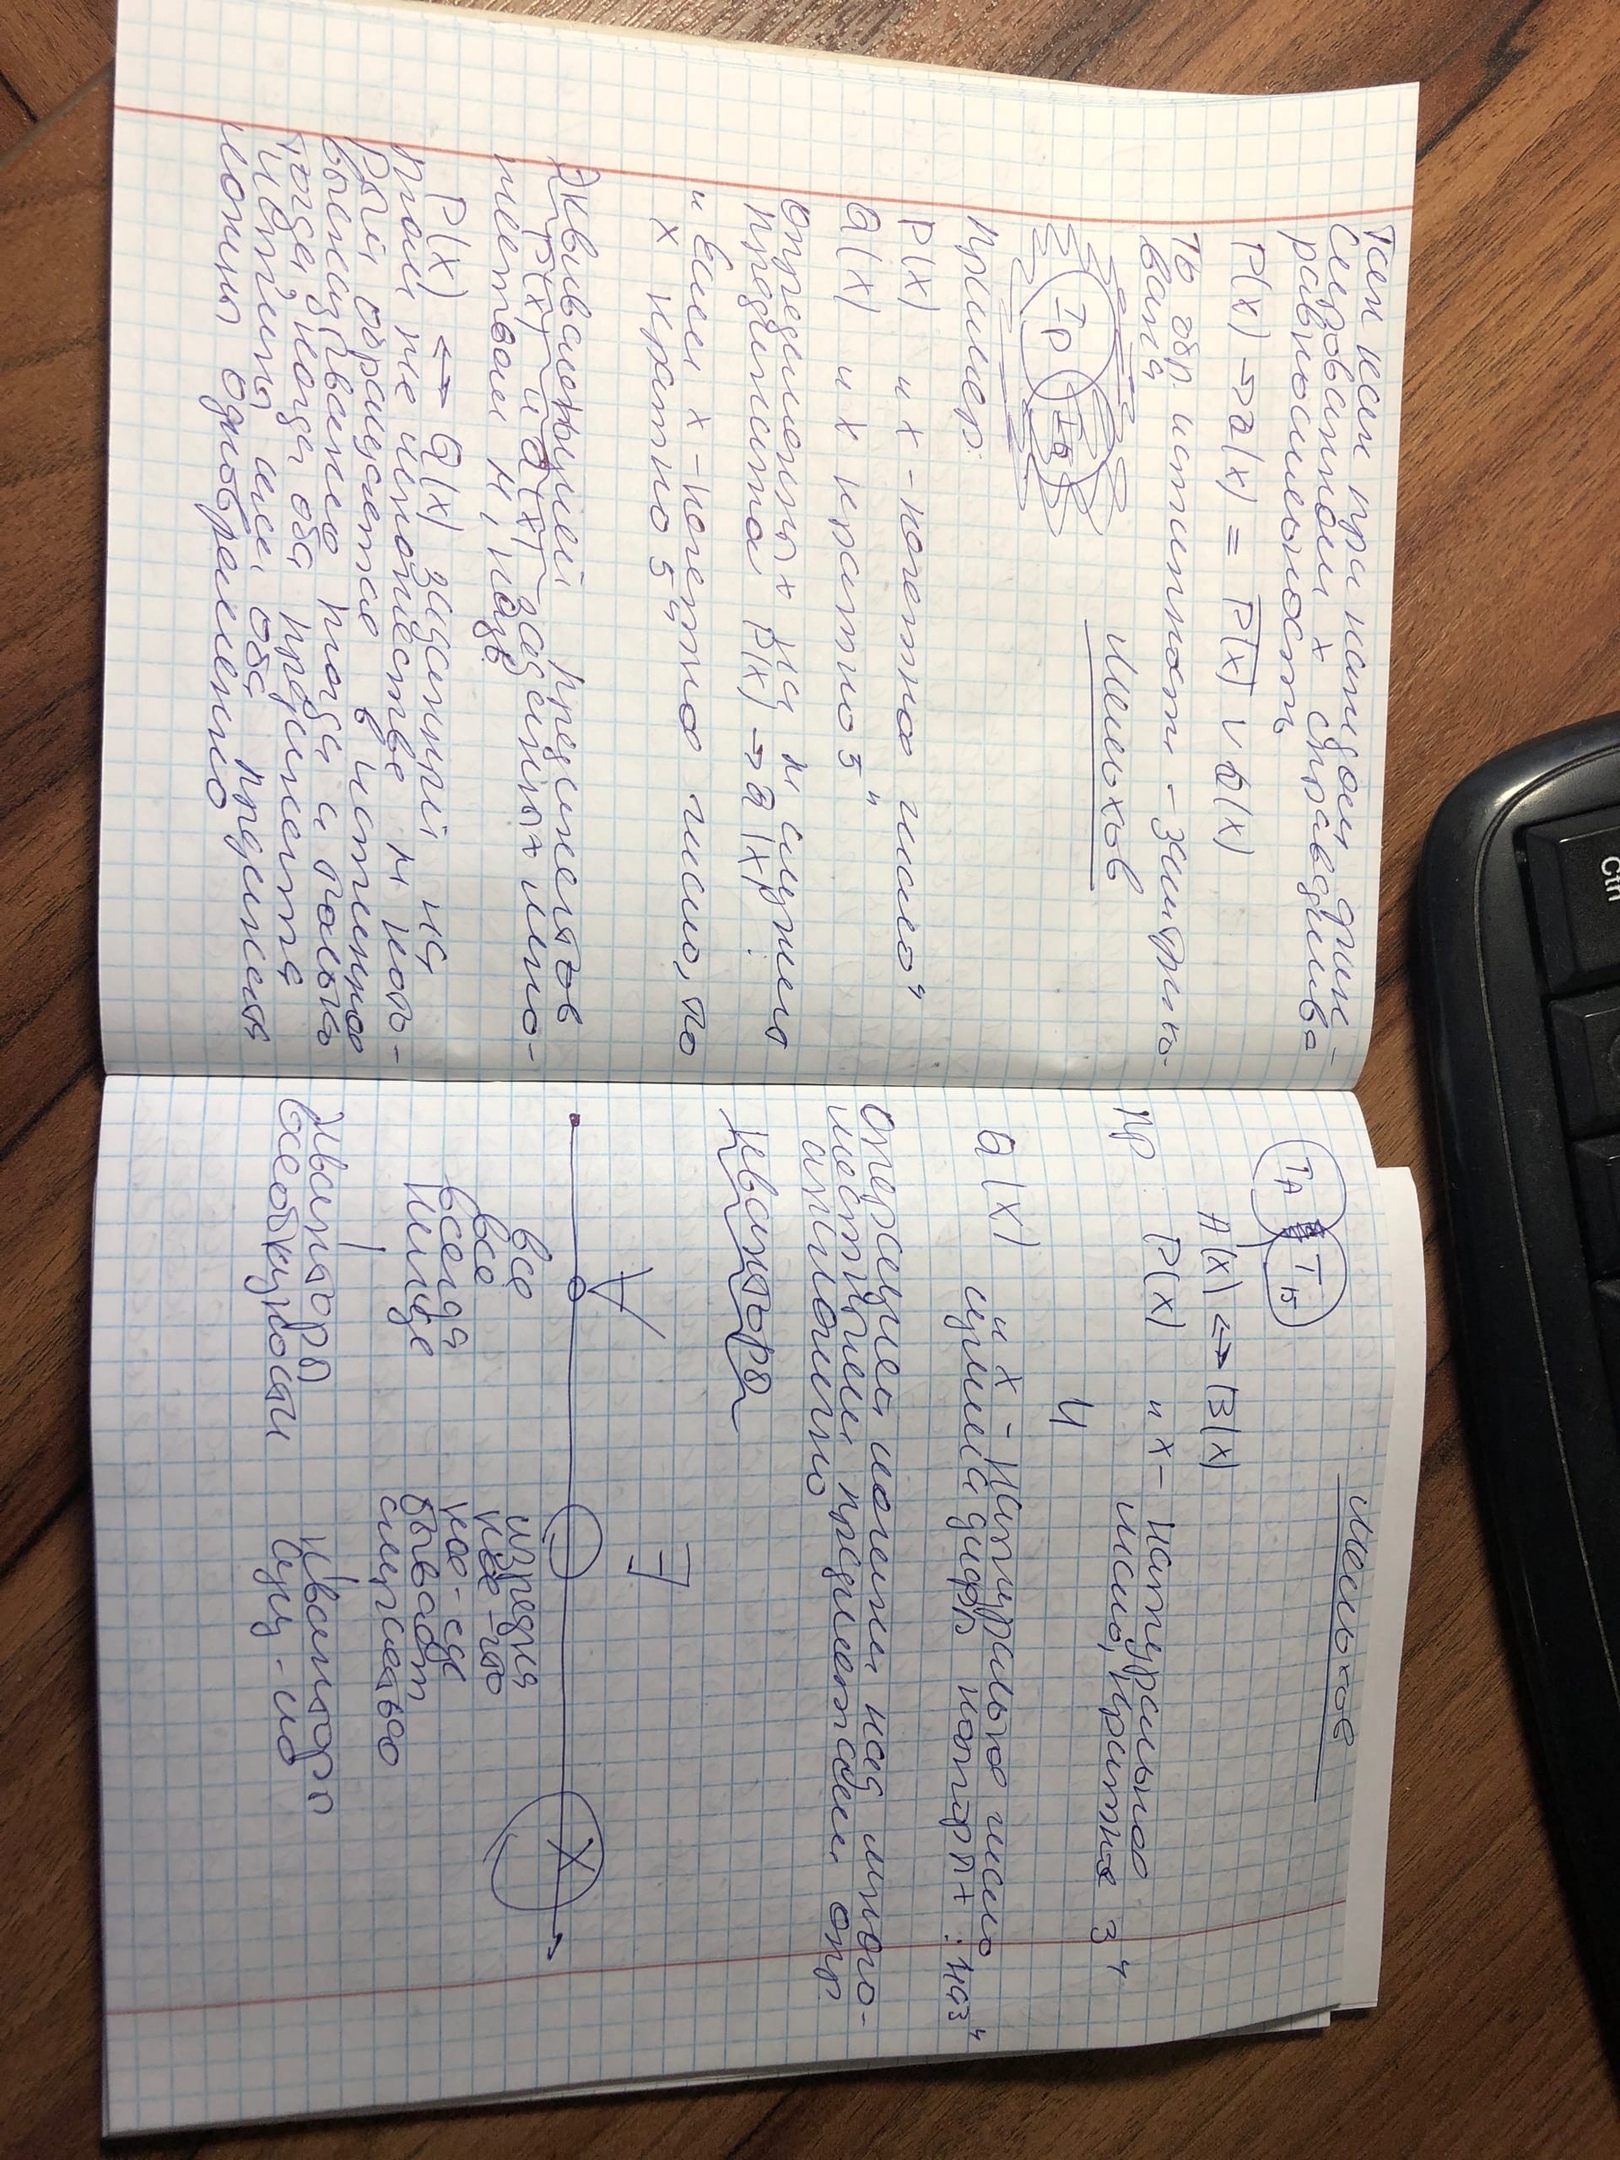 Ctrl
Так как при каждом фик-
сированном x справедлива
равносильность
P(x) → Q(x) = P̅(̅x̅)̅ ∨ Q(x)
То обр. истинности - заштрихо-
вана
Мелюхов
I_P I_Q
Пример:
P(x) „x - нечетное число"
Q(x) „x кратно 5"
Определенных на M служит
предиката P(x) → Q(x) :
„Если x - нечетное число, то
x кратно 5"
Эквиваленцией предикатов
P(x) и Q(x) заданных мно-
жеством M, назв.
P(x) ↔ Q(x) заданный на
том же множестве M кото-
рый обращается в истинное
высказывание тогда и только
тогда, когда оба предиката
истины или оба предиката
ложны одновременно
Мелюхов
T_A T_B
A(x) ↔ B(x)
Пр : P(x) „x - натуральное
число, кратное 3"
И
Q(x) „x - натуральное число
сумма цифр которых : на 3"
Операцией логики над много-
местными предметами опр.
аналогично
Кванторы
∀ ∃
X
все изредка
всё кое-что
всегда кое-где
нигде бывает
случается
Кванторы кванторы
всеобщности сущ-ло